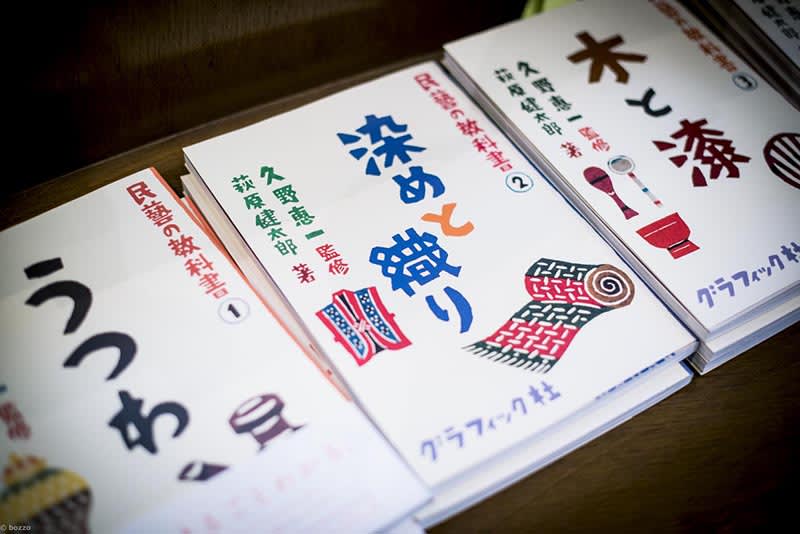 民藝の教科書
①
うつわ
監修
民藝の教科書
②
染めと織り
久野恵一 監修
萩原健太郎 著
グラフィック社
民藝の教科書
③
木と漆
久野恵一 監修
萩原健太郎 著
グラフィック社
© bozzo